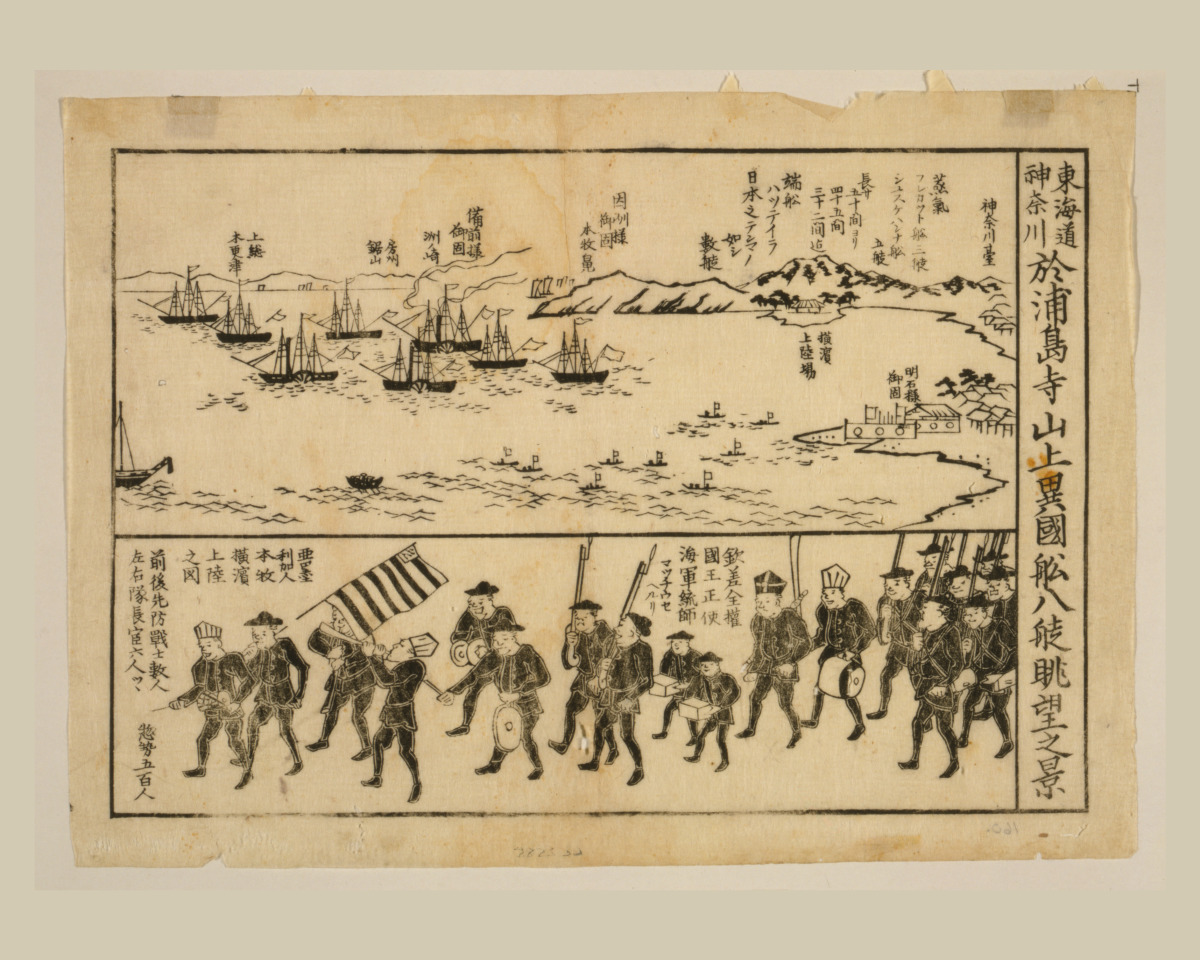 東海道
神奈川
於浦島寺山上異國舩八艘眺望之景
神奈川臺
蒸氣
フレカット舩三艘
五艘
長サ
五十間ヨリ
四十五間
三十二間迠
端舩
ハツテイラ
日本之テンマノ
如シ
數艘
因州様
御固
本牧
備前様
御固
洲崎
房州
鋸山
上總
木更津
横濱
上陸場
明石様
御固
欽差全權
國王正使
海軍統師
マツチウセ
ヘルリ
亜墨
利加人
本牧
横濱
上陸
之図
前後先防戰士數人
左右隊長官六人ツヽ
惣勢五百人